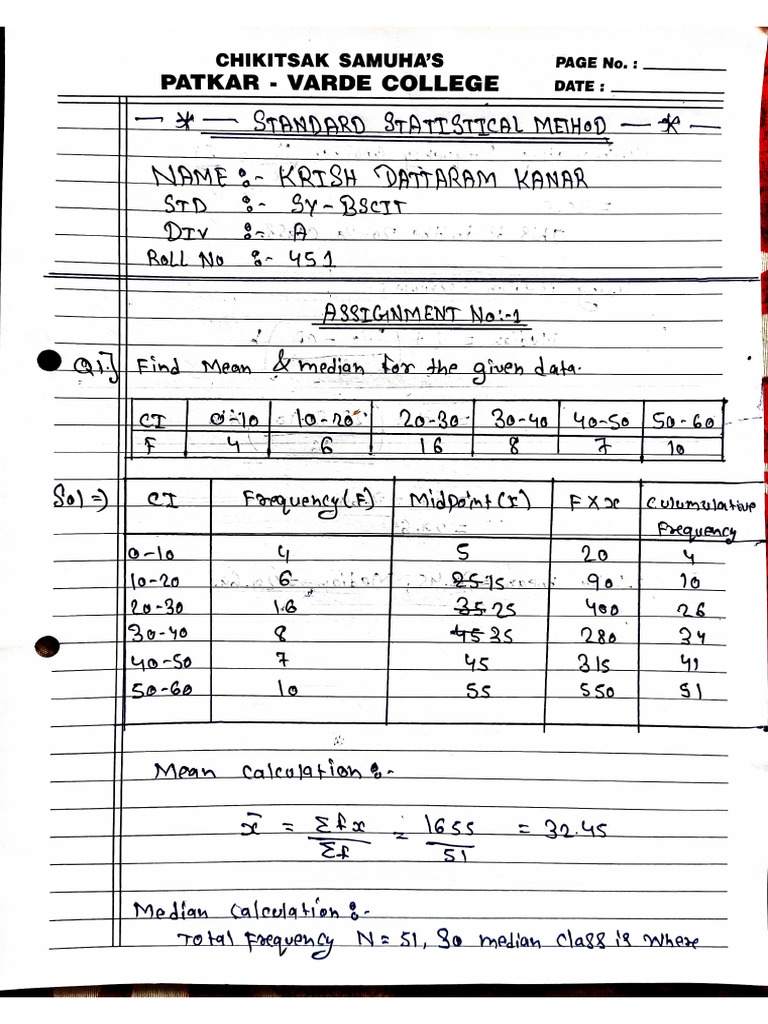 CHIKITSAK SAMUHA'S PAGE No. :
PATKAR - VARDE COLLEGE DATE :
— * — STANDARD STATISTICAL METHOD — * —
NAME :- KRISH DATTARAM KANAR
STD :- SY-BSCIT
DIV :- A
Roll No :- 451
ASSIGNMENT No:-1
Q1.] Find Mean & median for the given data.
CI 0-10 10-20 20-30 30-40 40-50 50-60
F 4 6 16 8 7 10
Sol ⇒ CI Frequency(F) Midpoint(X) F X x Culumulative
Frequency
0-10 4 5 20 4
10-20 6 25 15 90 10
20-30 16 35 25 400 26
30-40 8 45 35 280 34
40-50 7 45 315 41
50-60 10 55 550 51
Mean calculation :-
x̄ = Σfx / Σf = 1655 / 51 = 32.45
Median calculation :-
Total Frequency N = 51, So median class is where